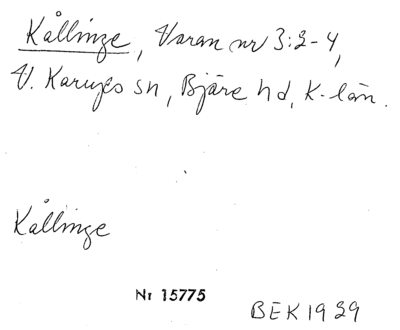 Kållinge, Varan nr 3:2-4,
V. Karups sn, Bjäre hd, K-län.
Kållinge
Nr 15775
BEK 1929